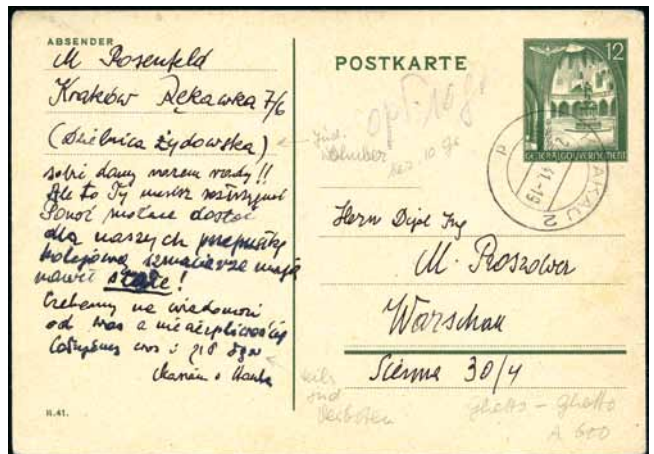 ABSENDER
M Rosenfeld
Kraków Rękawka 7/6
(Dzielnica Żydowska)
sobie damy razem rady!!
Ale to Ty musisz
Ponoć można dostać
dla naszych przepustkę
kolejową, szmaciarze mają
nawet stałe!
Czekamy na wiadomości
od Was z niecierpliwością
Całujemy Was i
Marian i Hanka
II.41.
POSTKARTE
12
GENERALGOUVERNEMENT
KRAKAU 2
41.-19
d
opł. 10 gr
Jüd.
Herrn Dipl Ing
M. Roszower
Warschau
Sienna 30/4
Ghetto - Ghetto
A 600